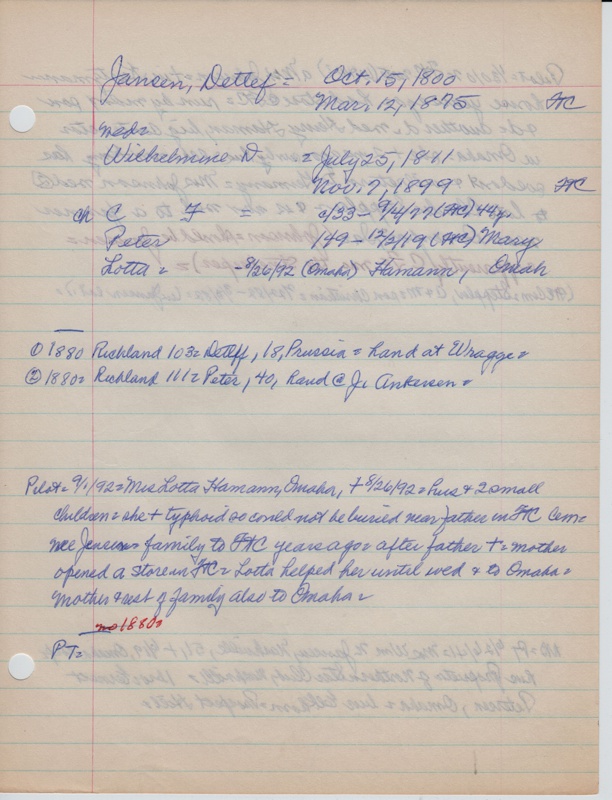 Jansen, Detlef = Oct. 15, 1800
Mar. 12, 1875 FC
med=
Wilhelmine D = July 25, 1811
Nov. 7, 1899 FC
ch C F = c/33 - 9/4/77 (FC) 44y.
Peter 1/49 - 12/2/19 (FC) Mary
Lotta = - 8/26/92 (Omaha) Hamann, Omah
① 1880 Richland 103= Detlef, 18, Prussia = hand at Wragge=
② 1880= Richland 111= Peter, 40, hand @ J. Ankersen =
Pilot= 9/1/92= Mrs Lotta Hamann, Omaha, + 8/26/92 = hus + 2 small
children = she + typhoid so could not be buried near father in FC Cem=
nee Jensen= family to FC years ago = after father + = mother
opened a store in FC = Lotta helped her until wed & to Omaha=
Mother & rest of family also to Omaha =
no 1880=
PT=